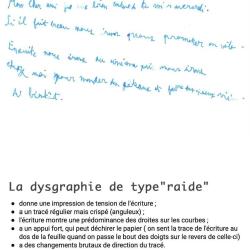 Mon cher ami je
Si il fait beau nous irons nous promener en vélo.
Ensuite nous irons au cinéma puis nous irons
chez moi pour manger du gâteau et
A bientôt.
La dysgraphie de type"raide"
• donne une impression de tension de l'écriture ;
• a un tracé régulier mais crispé (anguleux) ;
• l'écriture montre une prédominance des droites sur les courbes ;
• a un appui fort, qui peut déchirer le papier ( on sent la trace de l'écriture au
dos de la feuille quand on passe le bout des doigts sur le revers de celle-ci)
• a des changements brutaux de direction du tracé.